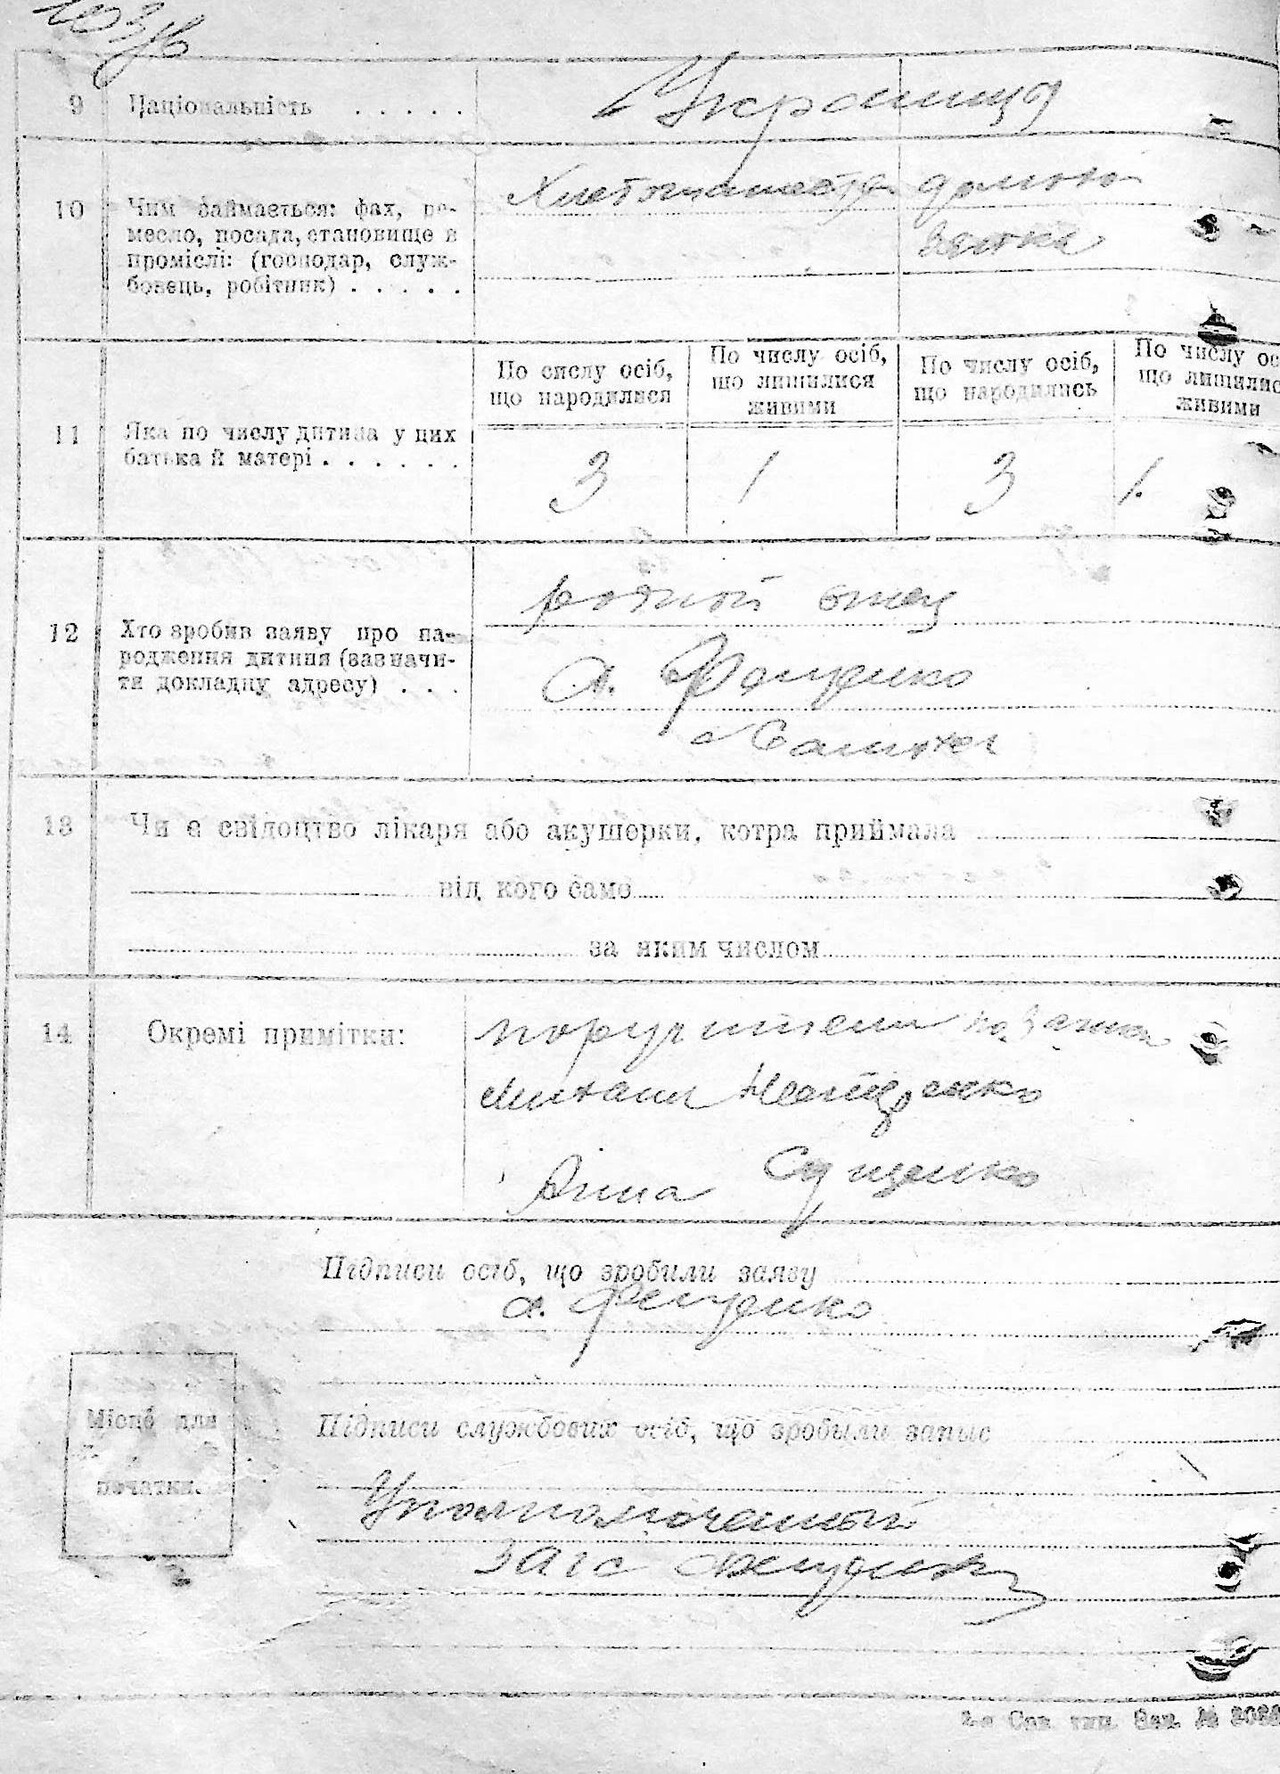 9 Національність . . . . .
Украинця
10 Чим займається: фах, ре-
месло, посада, становище в
проміслі: (господар, служ-
бовець, робітник) . . . . .
Хлебопашество домохо
зяйка
11 Яка по числу дитина у цих
батька й матері . . . . . .
По числу осіб,
що народилися
По числу осіб,
що лишилися
живими
По числу осіб,
що народились
По числу ос
що лишилис
живими
3 1 3 1.
12 Хто зробив заяву про на-
родження дитини (зазначи-
ти докладну адресу) . . .
родной отец
А. Фещенко
13 Чи є свідоцтво лікаря або акушерки, котра приймала
від кого само
за яким числом
14 Окремі примітки:
поручители
Михаил Нещеренко
Анна Сущенко
Підписи осіб, що зробили заяву
А. Фещенко
Місце для
печатки.
Підписи службових осіб, що зробыли запыс
Уполномоченный
ЗАГС